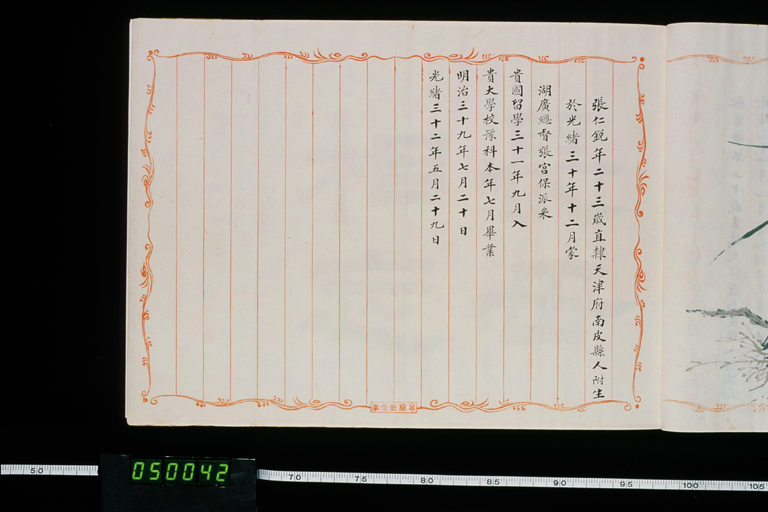 張仁銳年二十三歲直隸天津府南皮縣人附生
於光緒三十年十二月蒙
湖廣總督張宮保派來
貴國留學三十一年九月入
貴大學校豫科本年七月畢業
明治三十九年七月二十日
光緒三十二年五月二十九日
050042
5.0
7.0
7.5
8.0
8.5
9.0
9.5
10.0
10.5